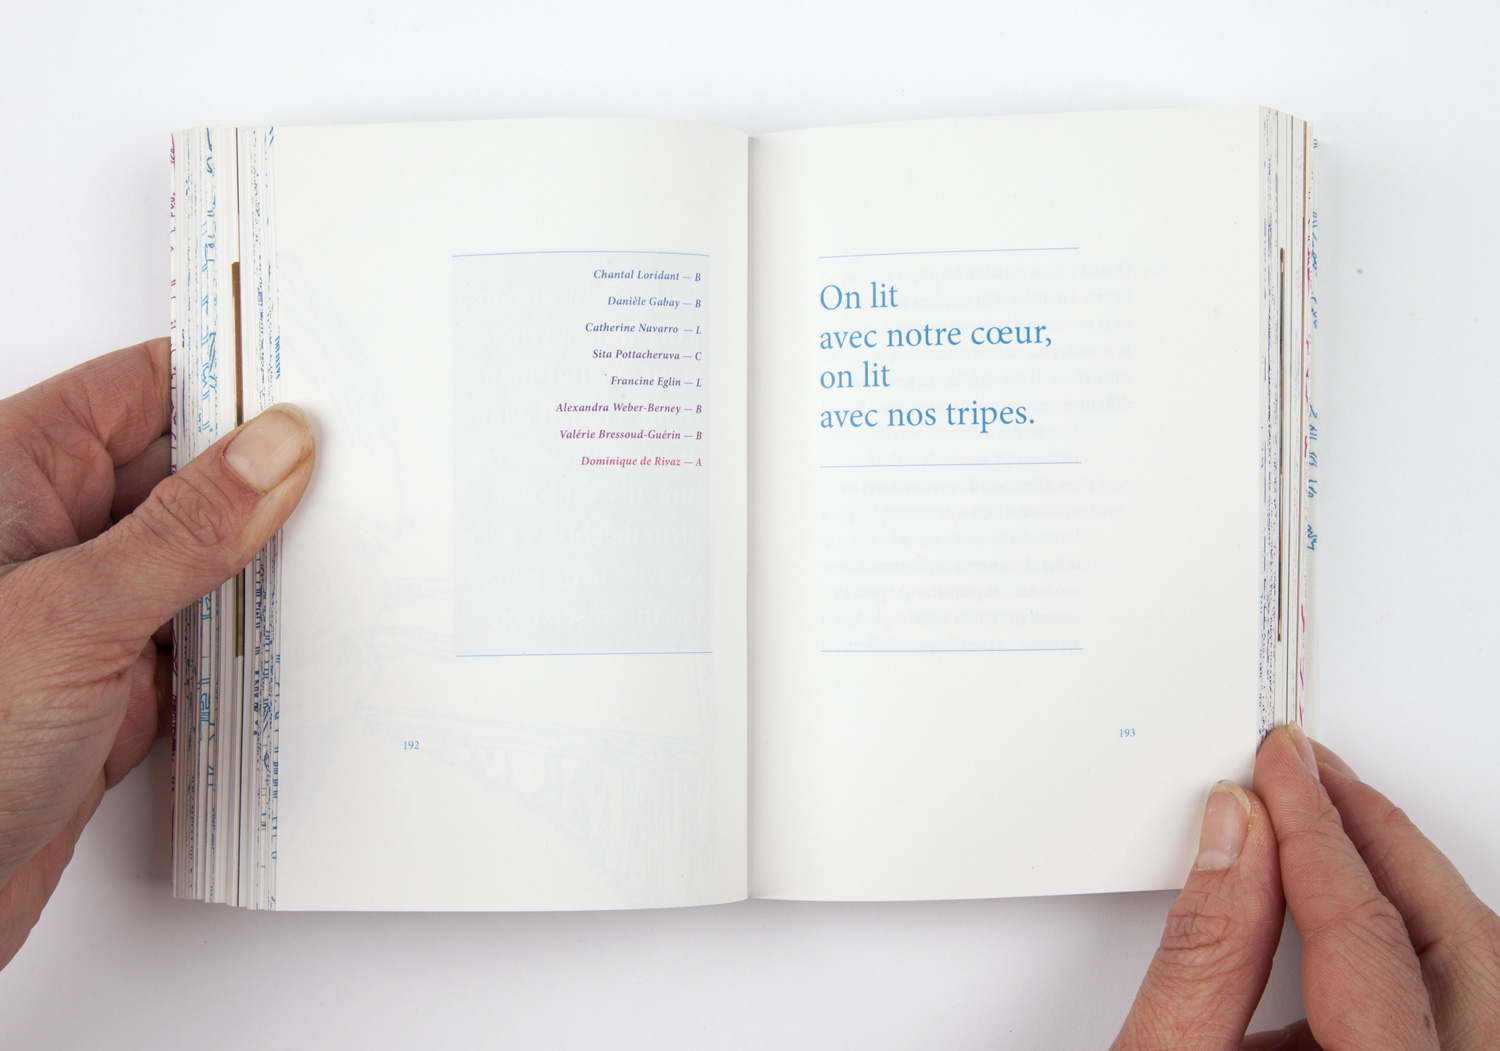 Chantal Loridant — B
Danièle Gabay — B
Catherine Navarro — L
Sita Pottacheruva — C
Francine Eglin — L
Alexandra Weber-Berney — B
Valérie Bressoud-Guérin — B
Dominique de Rivaz — A
192
On lit
avec notre cœur,
on lit
avec nos tripes.
193